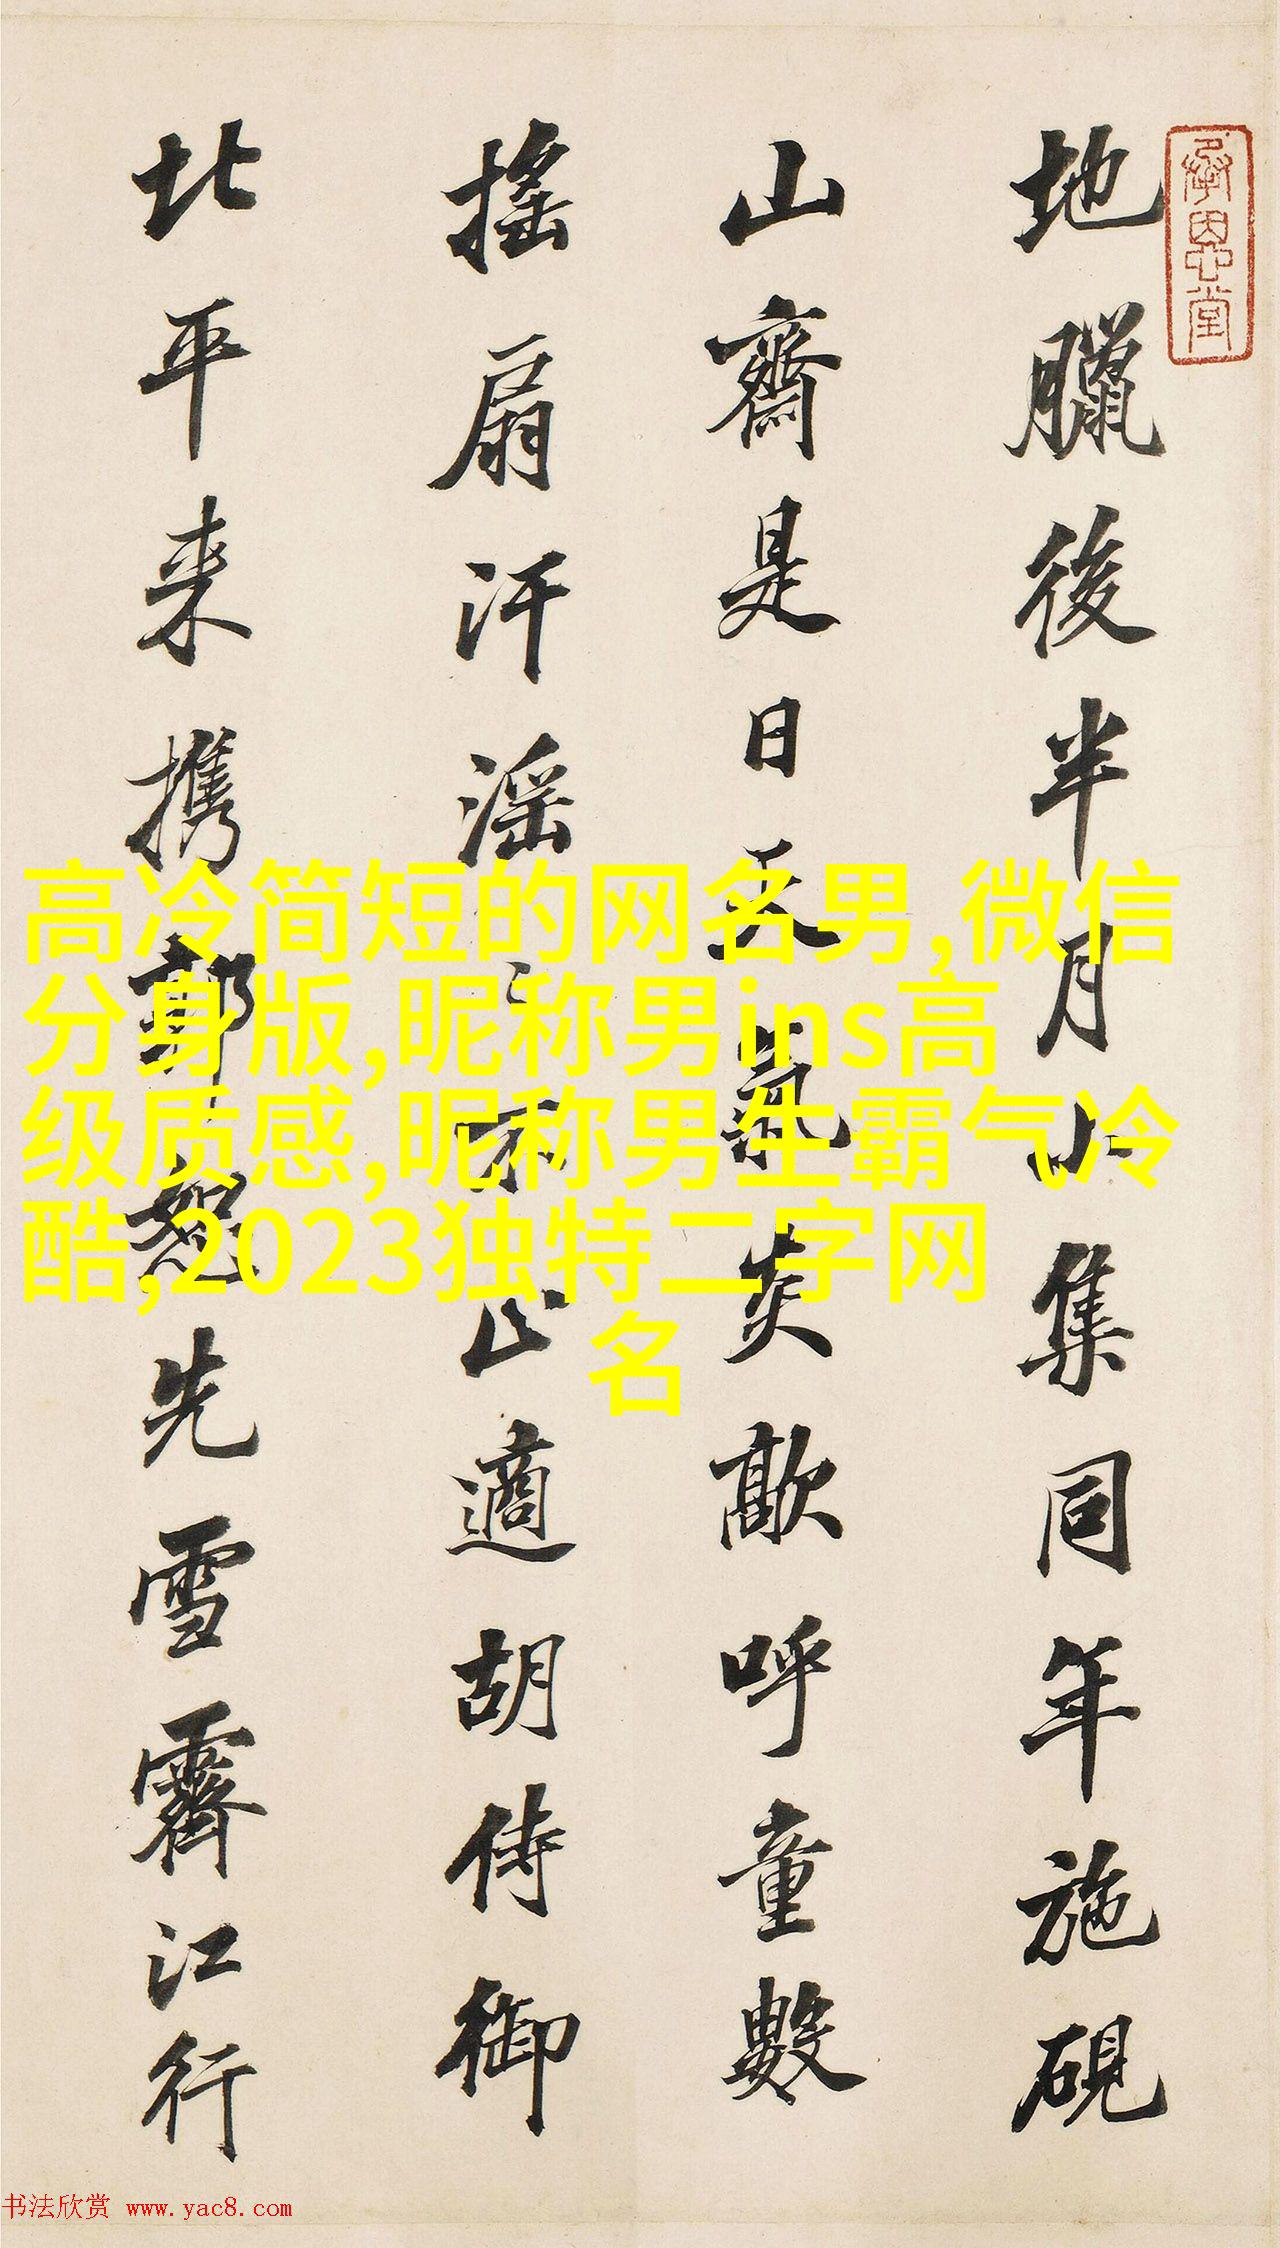 承恩堂
地臘後半月小集同年施硯
山齋是日天氣炎歊呼童數
搖扇汗淫〻不止適胡侍御
北平来携郭恕先雪霽江行
高冷简短的网名男,微信
分身版,昵称男ins高
级质感,昵称男生霸气冷
酷,2023独特二字网
名
书法欣赏 www.yac8.com